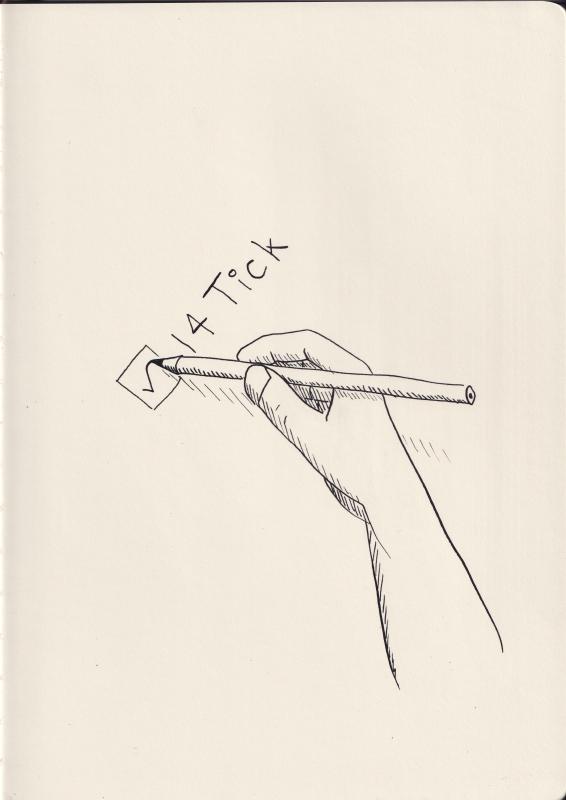 14 Tick